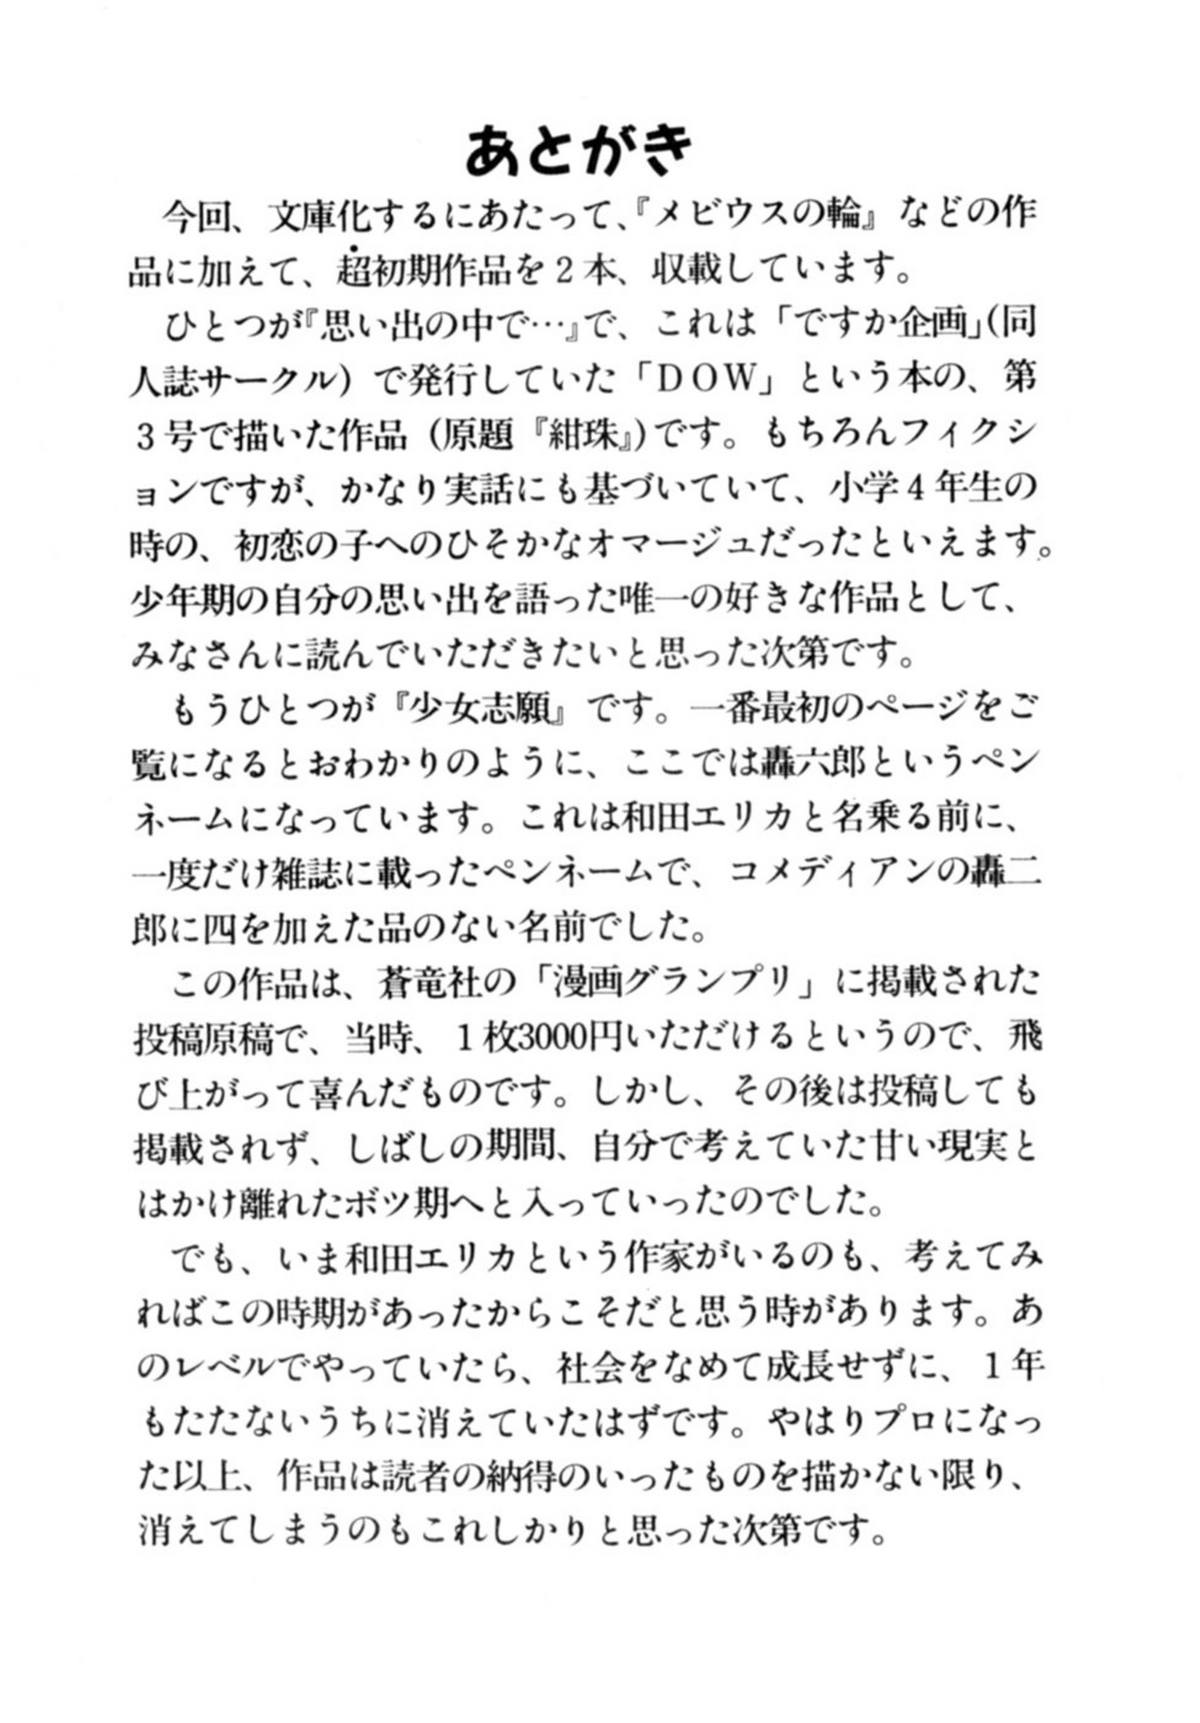 あとがき
今回、文庫化するにあたって、『メビウスの輪』などの作
品に加えて、超初期作品を2本、収載しています。
ひとつが『思い出の中で…』で、これは「ですか企画」(同
人誌サークル)で発行していた「DOW」という本の、第
3号で描いた作品(原題『紺珠』)です。もちろんフィクシ
ョンですが、かなり実話にも基づいていて、小学4年生の
時の、初恋の子へのひそかなオマージュだったといえます。
少年期の自分の思い出を語った唯一の好きな作品として、
みなさんに読んでいただきたいと思った次第です。
もうひとつが『少女志願』です。一番最初のページをご
覧になるとおわかりのように、ここでは轟六郎というペン
ネームになっています。これは和田エリカと名乗る前に、
一度だけ雑誌に載ったペンネームで、コメディアンの轟二
郎に四を加えた品のない名前でした。
この作品は、蒼竜社の「漫画グランプリ」に掲載された
投稿原稿で、当時、1枚3000円いただけるというので、飛
び上がって喜んだものです。しかし、その後は投稿しても
掲載されず、しばしの期間、自分で考えていた甘い現実と
はかけ離れたボツ期へと入っていったのでした。
でも、いま和田エリカという作家がいるのも、考えてみ
ればこの時期があったからこそだと思う時があります。あ
のレベルでやっていたら、社会をなめて成長せずに、1年
もたたないうちに消えていたはずです。やはりプロになっ
た以上、作品は読者の納得のいったものを描かない限り、
消えてしまうのもこれしかりと思った次第です。